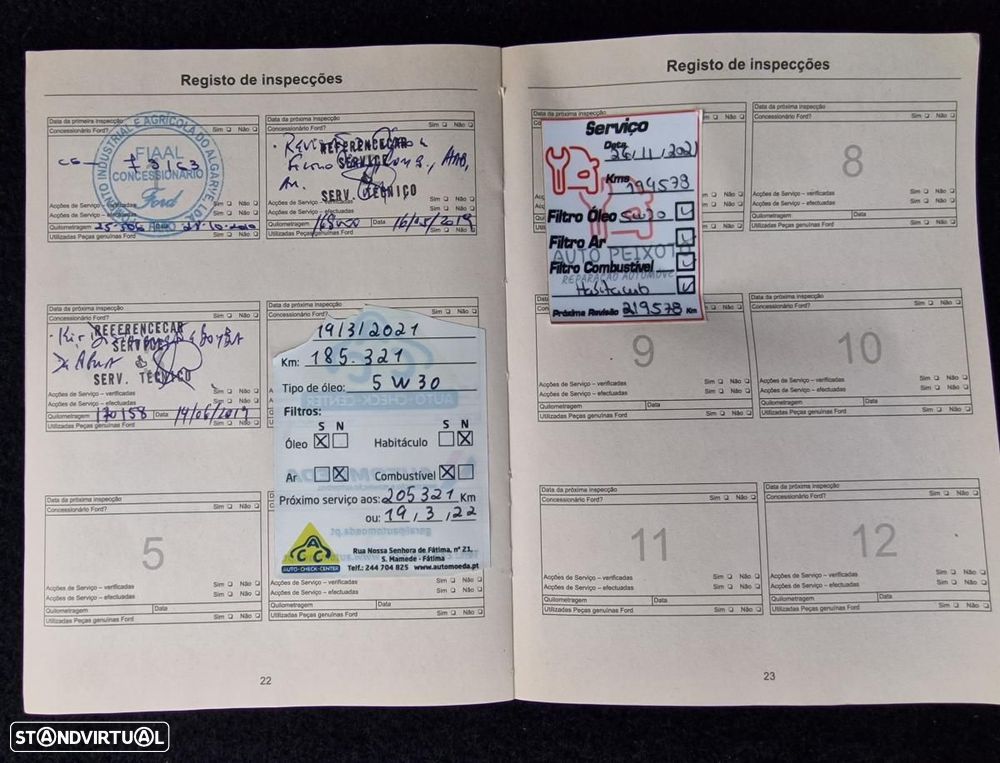 Registo de inspecções
Data da primeira inspecção
Concessionário Ford? Sim Não
CENTRO INDUSTRIAL E AGRÍCOLA DO ALGARVE, LDA
FIAAL
CONCESSIONÁRIO
Ford
Acções de Serviço – verificadas Sim Não
Acções de Serviço – efectuadas Sim Não
Quilometragem Data 28-10-2010
Utilizadas Peças genuínas Ford Sim Não
Data da próxima inspecção
Concessionário Ford? Sim Não
REFERENCECAR
SERVICE
Ar.
SERV. TÉCNICO
Quilometragem Data 16/05/2019
Utilizadas Peças genuínas Ford Sim Não
Data da próxima inspecção
Concessionário Ford? Sim Não
REFERENCECAR
SERVICE
SERV. TÉCNICO
Acções de Serviço – verificadas Sim Não
Acções de Serviço – efectuadas Sim Não
Quilometragem 170158 Data 14/06/2019
Utilizadas Peças genuínas Ford Sim Não
Data da próxima inspecção
Concessionário Ford? Sim Não
19/3/2021
Km: 185.321
Tipo de óleo: 5W30
AUTO-CHECK-CENTER
Filtros:
S N S N
Óleo Habitáculo
Ar Combustível
Próximo serviço aos: 205321 Km
ou: 19, 3, 22
ACC
AUTO-CHECK-CENTER
Rua Nossa Senhora de Fátima, nº 21,
S. Mamede - Fátima
Telf.: 244 704 825 www.automoeda.pt
Data da próxima inspecção
Concessionário Ford? Sim Não
5
Acções de Serviço – verificadas Sim Não
Acções de Serviço – efectuadas Sim Não
Quilometragem Data
Utilizadas Peças genuínas Ford Sim Não
Sim Não
Sim Não
Quilometragem Data
Utilizadas Peças genuínas Ford Sim Não
22
Registo de inspecções
Serviço
Data 26/11/2021
Kms 199578
Filtro Óleo 5W30
Filtro Ar
AUTO PEIXOTO
Filtro Combustível
REPARAÇÃO AUTOMÓVEL
Habitaculo
Próxima Revisão 219578 Km
Data da próxima inspecção
Concessionário Ford? Sim Não
8
Acções de Serviço – verificadas Sim Não
Acções de Serviço – efectuadas Sim Não
Quilometragem Data
Utilizadas Peças genuínas Ford Sim Não
9
Acções de Serviço – verificadas Sim Não
Acções de Serviço – efectuadas Sim Não
Quilometragem Data
Utilizadas Peças genuínas Ford Sim Não
Data da próxima inspecção
Concessionário Ford? Sim Não
10
Acções de Serviço – verificadas Sim Não
Acções de Serviço – efectuadas Sim Não
Quilometragem Data
Utilizadas Peças genuínas Ford Sim Não
Data da próxima inspecção
Concessionário Ford? Sim Não
11
Acções de Serviço – verificadas Sim Não
Acções de Serviço – efectuadas Sim Não
Quilometragem Data
Utilizadas Peças genuínas Ford Sim Não
Data da próxima inspecção
Concessionário Ford? Sim Não
12
Acções de Serviço – verificadas Sim Não
Acções de Serviço – efectuadas Sim Não
Quilometragem Data
Utilizadas Peças genuínas Ford Sim Não
23
STANDVIRTUAL